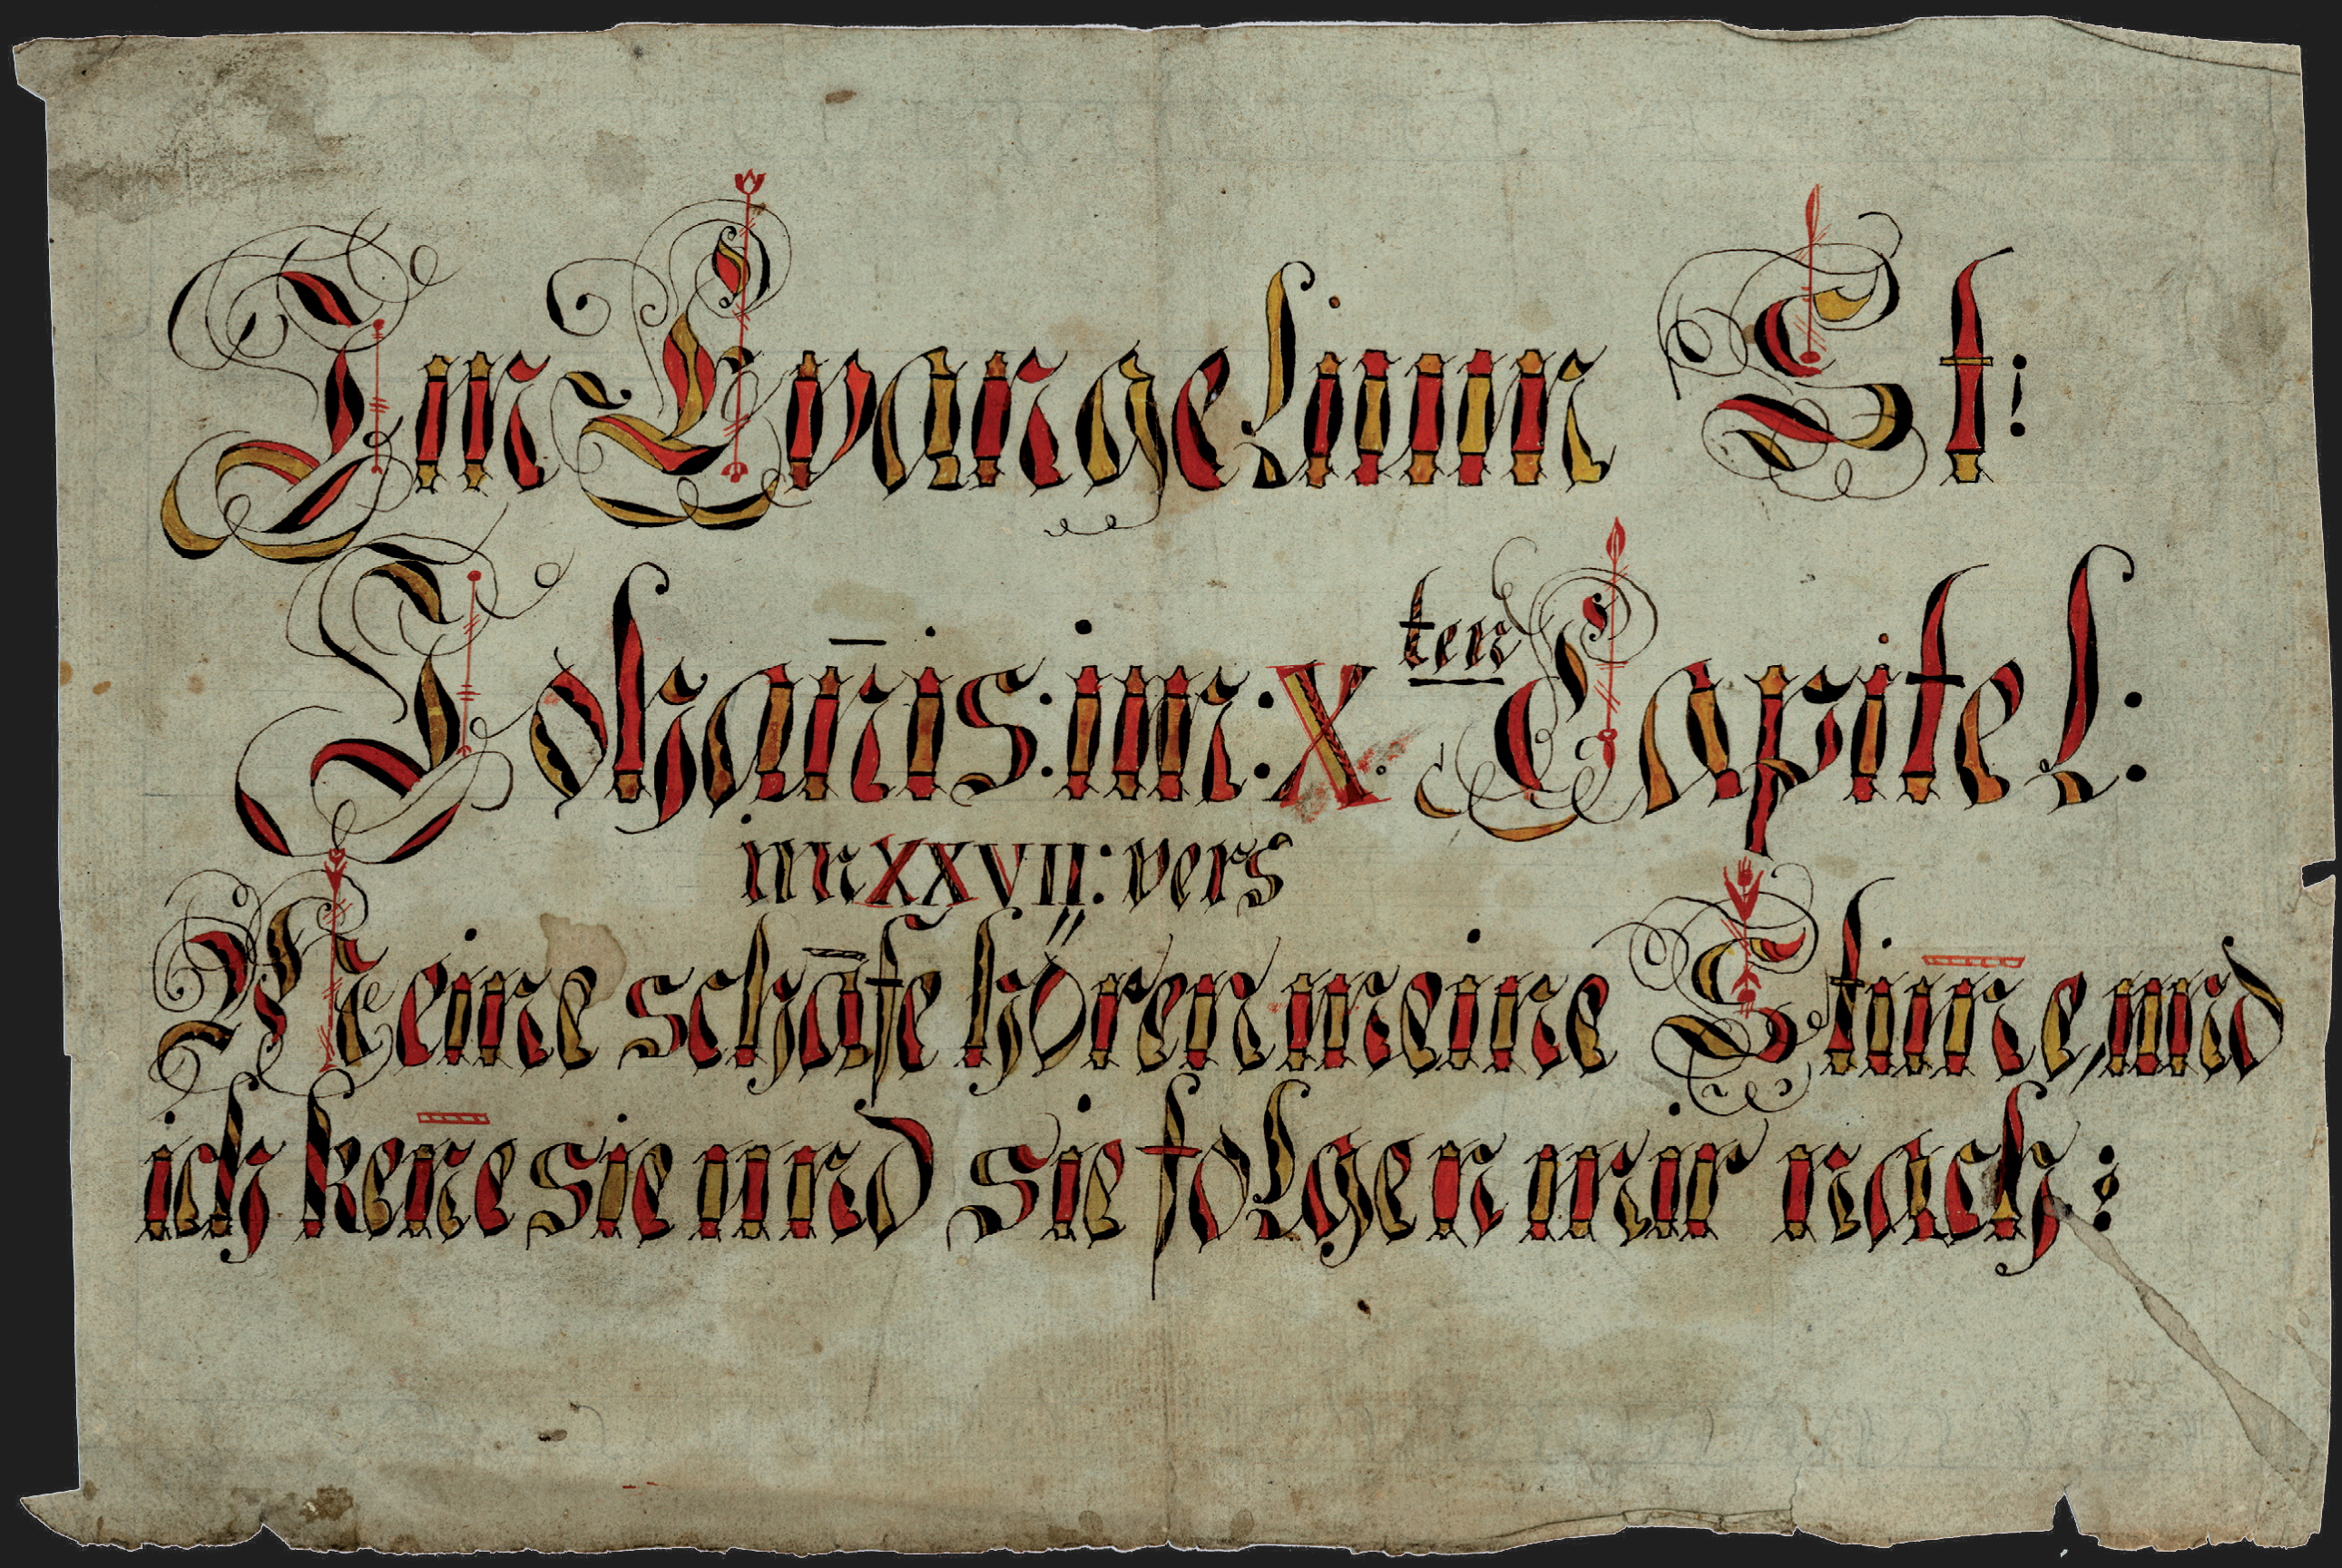 Im Evangelium St:
Johan̄is: im: X ten Capitel:
im XXVII: vers
Meine schāfe hören meine Stim̄e, und
ich ken̄e sie und sie folgen mir nach: